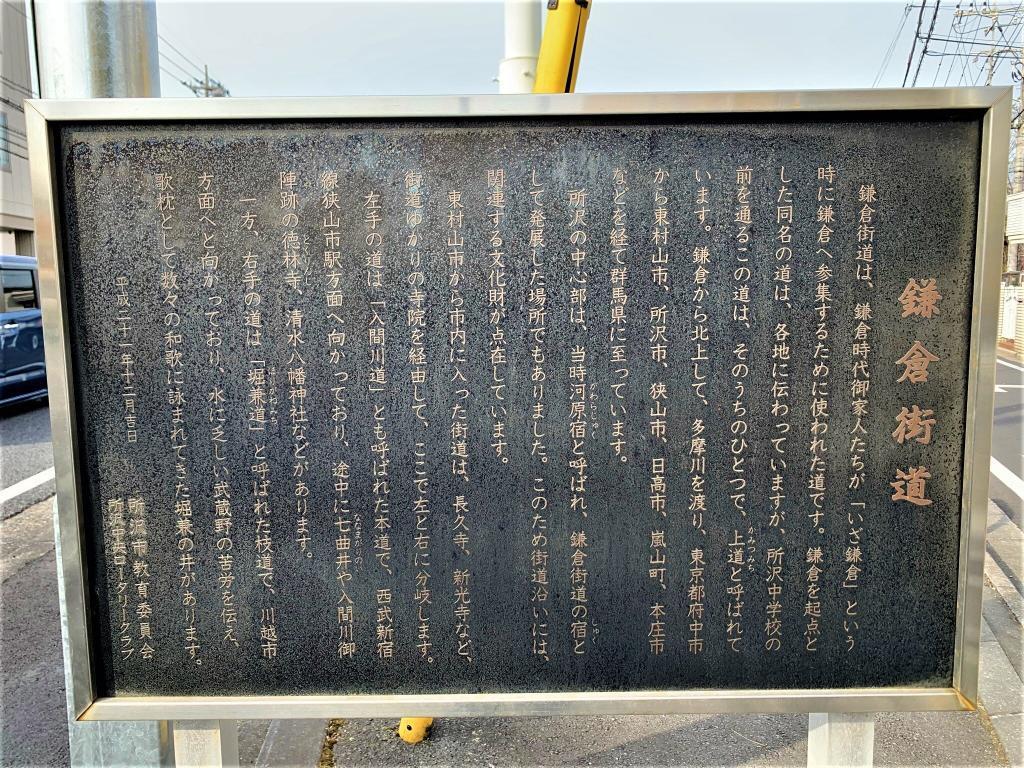 鎌倉街道
鎌倉街道は、鎌倉時代御家人たちが「いざ鎌倉」という
時に鎌倉へ参集するために使われた道です。鎌倉を起点と
した同名の道は、各地に伝わっていますが、所沢中学校の
前を通るこの道は、そのうちのひとつで、上道と呼ばれて
かみつみち
います。鎌倉から北上して、多摩川を渡り、東京都府中市
から東村山市、所沢市、狭山市、日高市、嵐山町、本庄市
などを経て群馬県に至っています。
所沢の中心部は、当時河原宿と呼ばれ、鎌倉街道の宿と
がわらじゅく
しゅく
して発展した場所でもありました。このため街道沿いには、
関連する文化財が点在しています。
東村山市から市内に入った街道は、長久寺、新光寺など、
街道ゆかりの寺院を経由して、ここで左と右に分岐します。
左手の道は、「入間川道」とも呼ばれた本道で、西武新宿
線狭山市駅方面へ向かっており、途中に七曲井や入間川御
ななまがりのい
陣跡の徳林寺、清水八幡神社などがあります。
とくりんじ
一方、右手の道は「堀兼道」と呼ばれた枝道で、川越市
ほりかねみち
方面へと向かっており、水に乏しい武蔵野の苦労を伝え、
歌枕として数々の和歌に詠まれてきた堀兼の井があります。
平成二十一年十二月吉日
所沢市教育委員会
所沢中央ロータリークラブ